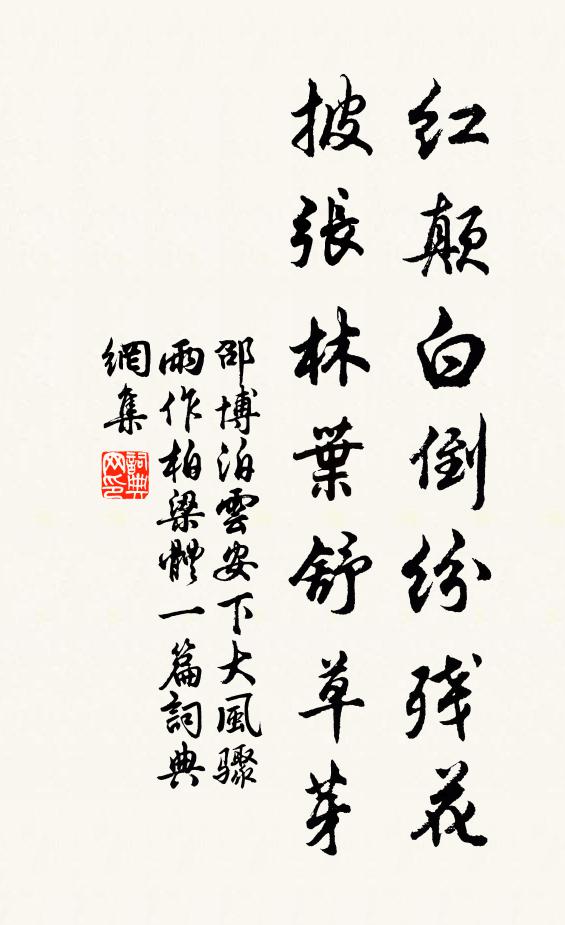 红颠白倒纷残花
披張林葉舒草芽
邵博泊雲安下大風骤
雨作柏梁體一篇詞典
網集
詞典
网印